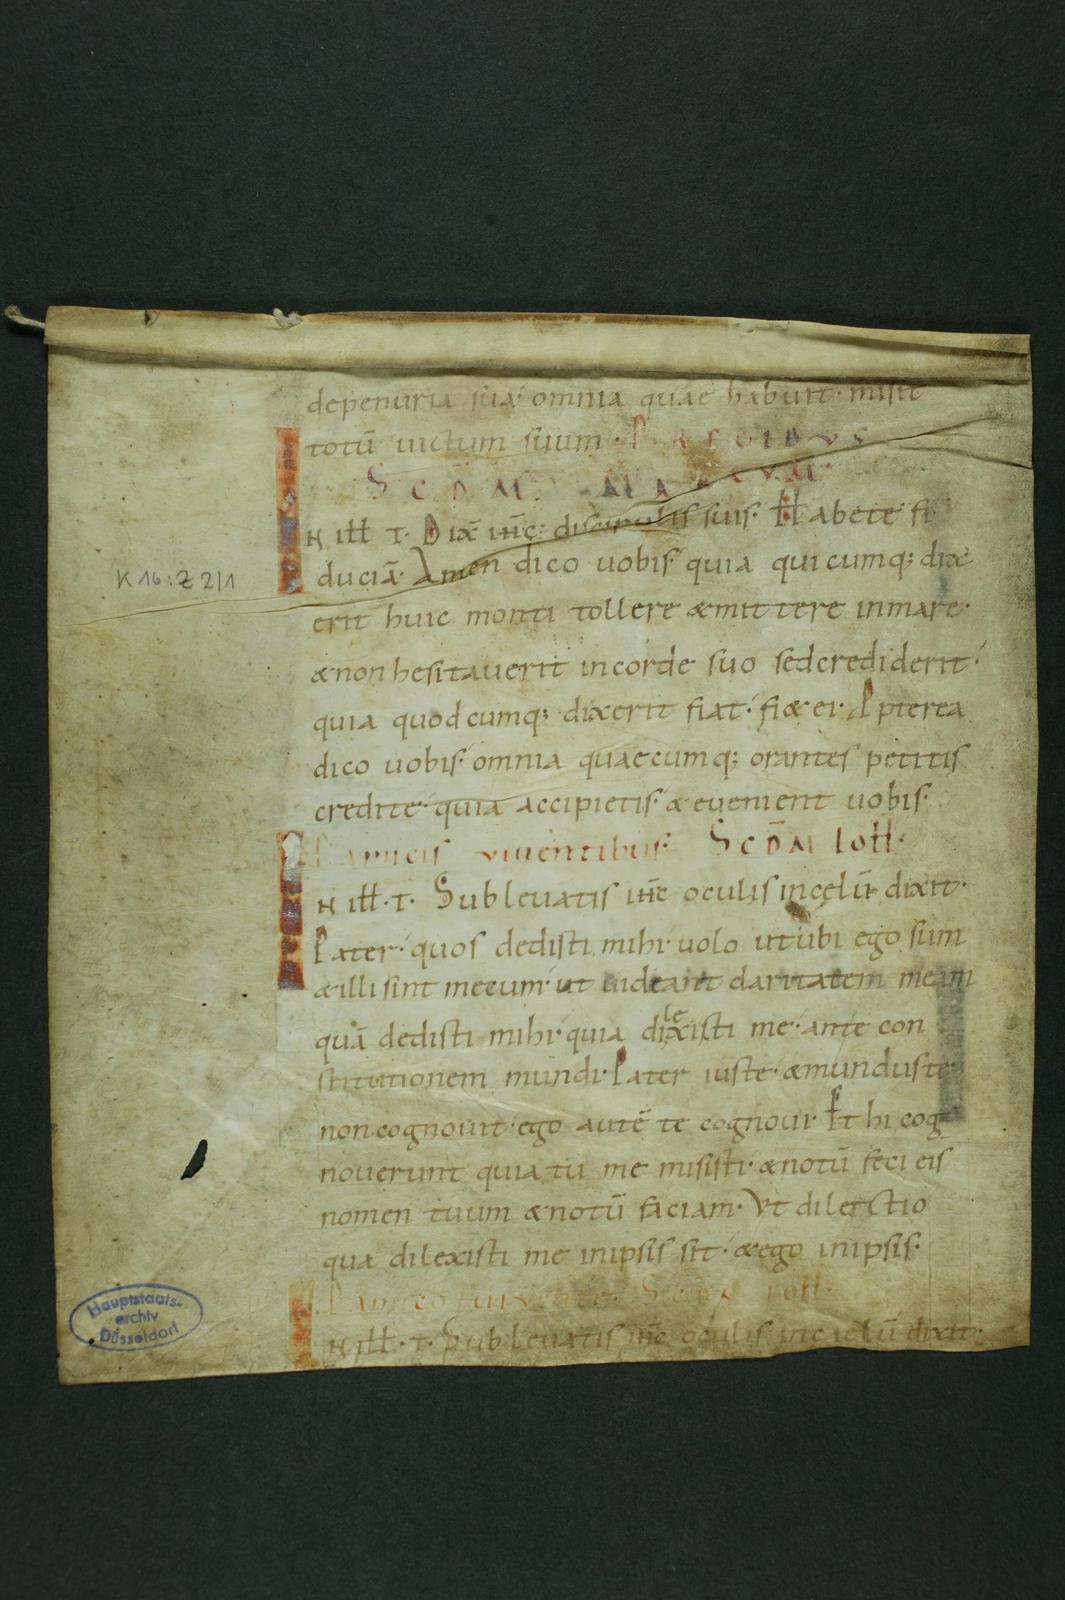 depenuria sua omnia quae habuit misit
totū uictum suum·
SCDM MARCVM·
IN iłł t· Dix̄ ihc̄: discipulis suis· Habete fi
duciā· Amen dico uobis quia qui cumq; dix
erit huic monti tollere &mittere inmare·
&non hesitauerit incorde suo sedcrediderit·
quia quodcumq; dixerit fiat· fi& ei· Ppterea
dico uobis· omnia quaecumq; orantes petitis
credite· quia accipietis & euenient uobis·
P amicis viuentibus· SCDM Ioħ·
IN iłł·t· Subleuatis ihc̄ oculis incęlū dixit·
Pater· quos dedisti mihi· uolo utubi ego sum
&illi sint mecum· ut uideant claritatem meam
quā dedisti mihi· quia dilexisti me· ante con
stitutionem mundi· Pater iuste· &mundus te
non cognouit· ego autē te cognoui· Et hi cog
nouerunt quia tu me misisti· &notū feci eis
nomen tuum &notū faciam· Vt dilectio
qua dilexisti me inipsis sit· &ego inipsis·
P amico SCDM Ioħ
IN iłł·t· Subleuatis ihc̄ oculis incaelū dixit·
K 16: Z 2/1
Hauptstaats-
archiv
Düsseldorf